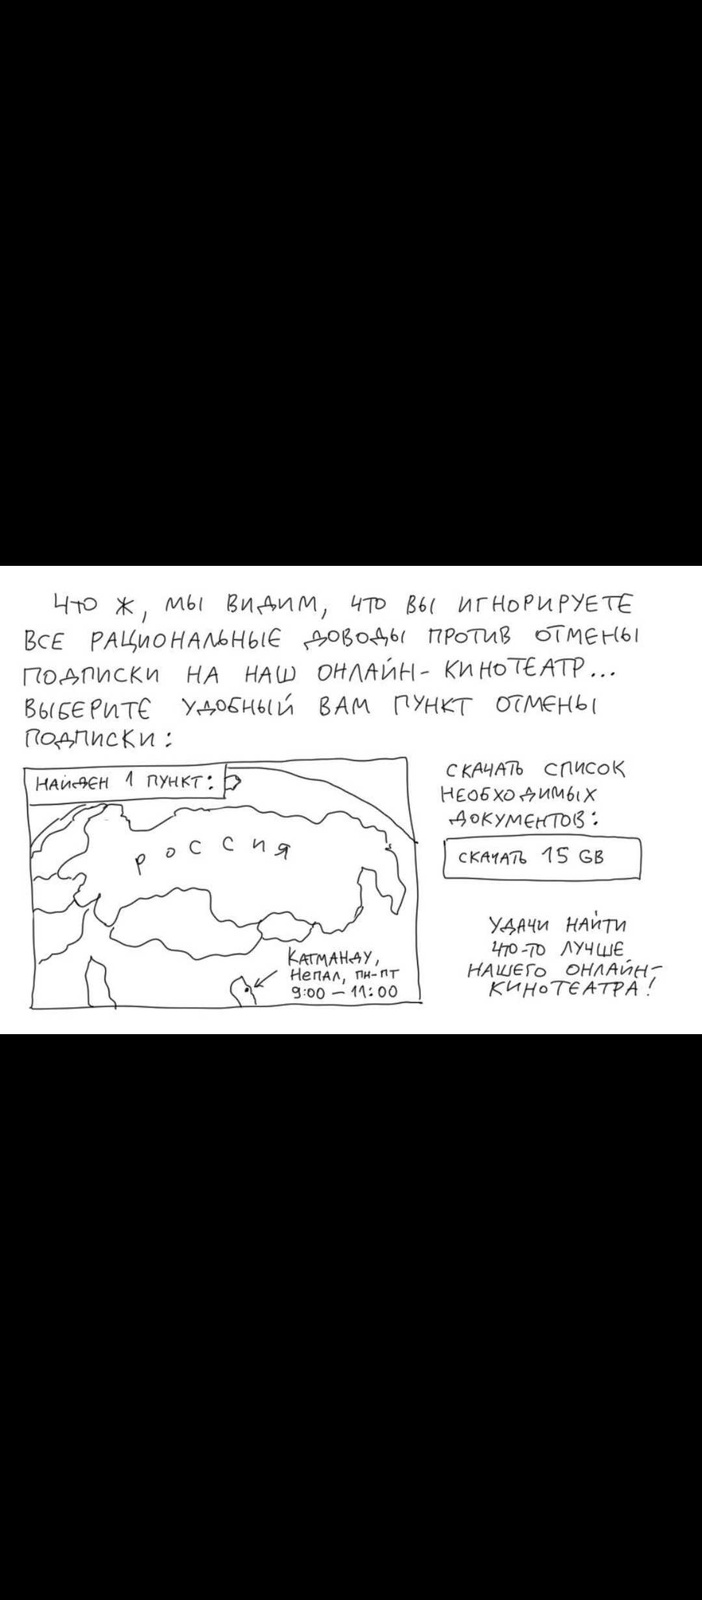 ЧТО Ж, МЫ ВИДИМ, ЧТО ВЫ ИГНОРИРУЕТЕ
ВСЕ РАЦИОНАЛЬНЫЕ ДОВОДЫ ПРОТИВ ОТМЕНЫ
ПОДПИСКИ НА НАШ ОНЛАЙН-КИНОТЕАТР...
ВЫБЕРИТЕ УДОБНЫЙ ВАМ ПУНКТ ОТМЕНЫ
ПОДПИСКИ:
НАЙДЕН 1 ПУНКТ:
РОССИЯ
КАТМАНДУ,
НЕПАЛ, ПН-ПТ
9:00 – 11:00
СКАЧАТЬ СПИСОК
НЕОБХОДИМЫХ
ДОКУМЕНТОВ:
СКАЧАТЬ 15 GB
УДАЧИ НАЙТИ
ЧТО-ТО ЛУЧШЕ
НАШЕГО ОНЛАЙН-
КИНОТЕАТРА!